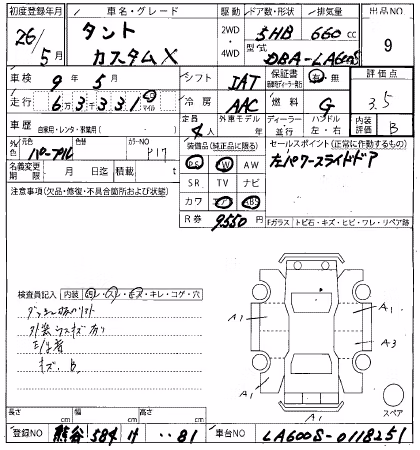 初度登録年月 車名・グレード 駆動 ドア数・形状 排気量 出品NO
26/5月 タント カスタムX 2WD・4WD 5HB 660cc 9
型式 DBA-LA600S
車検 9年 5月 シフト IAT 保証書 有・無 評価点 3.5
走行 6万3千331 km マイル 冷房 AAC 燃料 G
車歴 自家用・レンタ・事業用( ) 定員 4人 外車モデル年 ディーラー・並行 ハンドル 左・右 内装評価 B
外色 元色 パープル 色替 カラーNO P17
装備品(純正品に限る) セールスポイント(正常に作動するもの)
PS PW AW 左パワースライドドア
名義変更期限 月 日迄 積載 t SR TV ナビ
注意事項(欠品・修復・不具合箇所および状態) カワ ABS
R券 9550円
Fガラス トビ石・キズ・ヒビ・ワレ・リペア跡
検査員記入 内装 ・キレ・コゲ・穴
外装ウスキズ有り
キズ、B
A1
A1
A1
A3
A1
A1
スペア
長さ cm 幅 cm 高さ cm
登録NO 熊谷 584 ・・81 車台NO LA600S-0118251